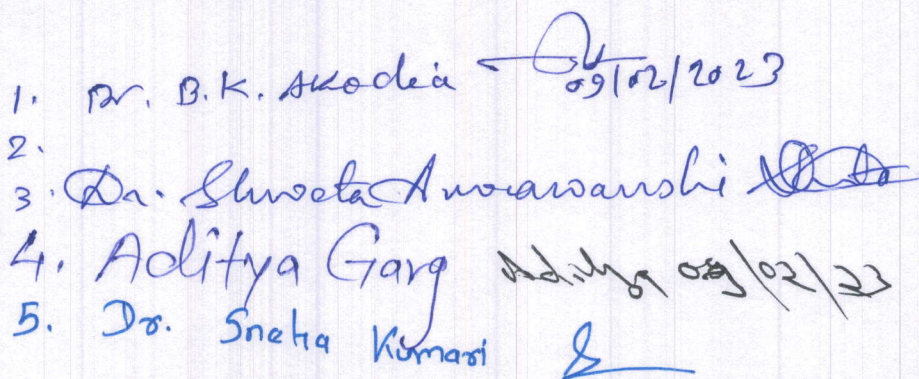 1. Dr. B.K. Akodia 09/02/2023
2.
3. Dr. Shweta Anwarwanshi
4. Aditya Garg Aditya 09/02/23
5. Dr. Sneha Kumari